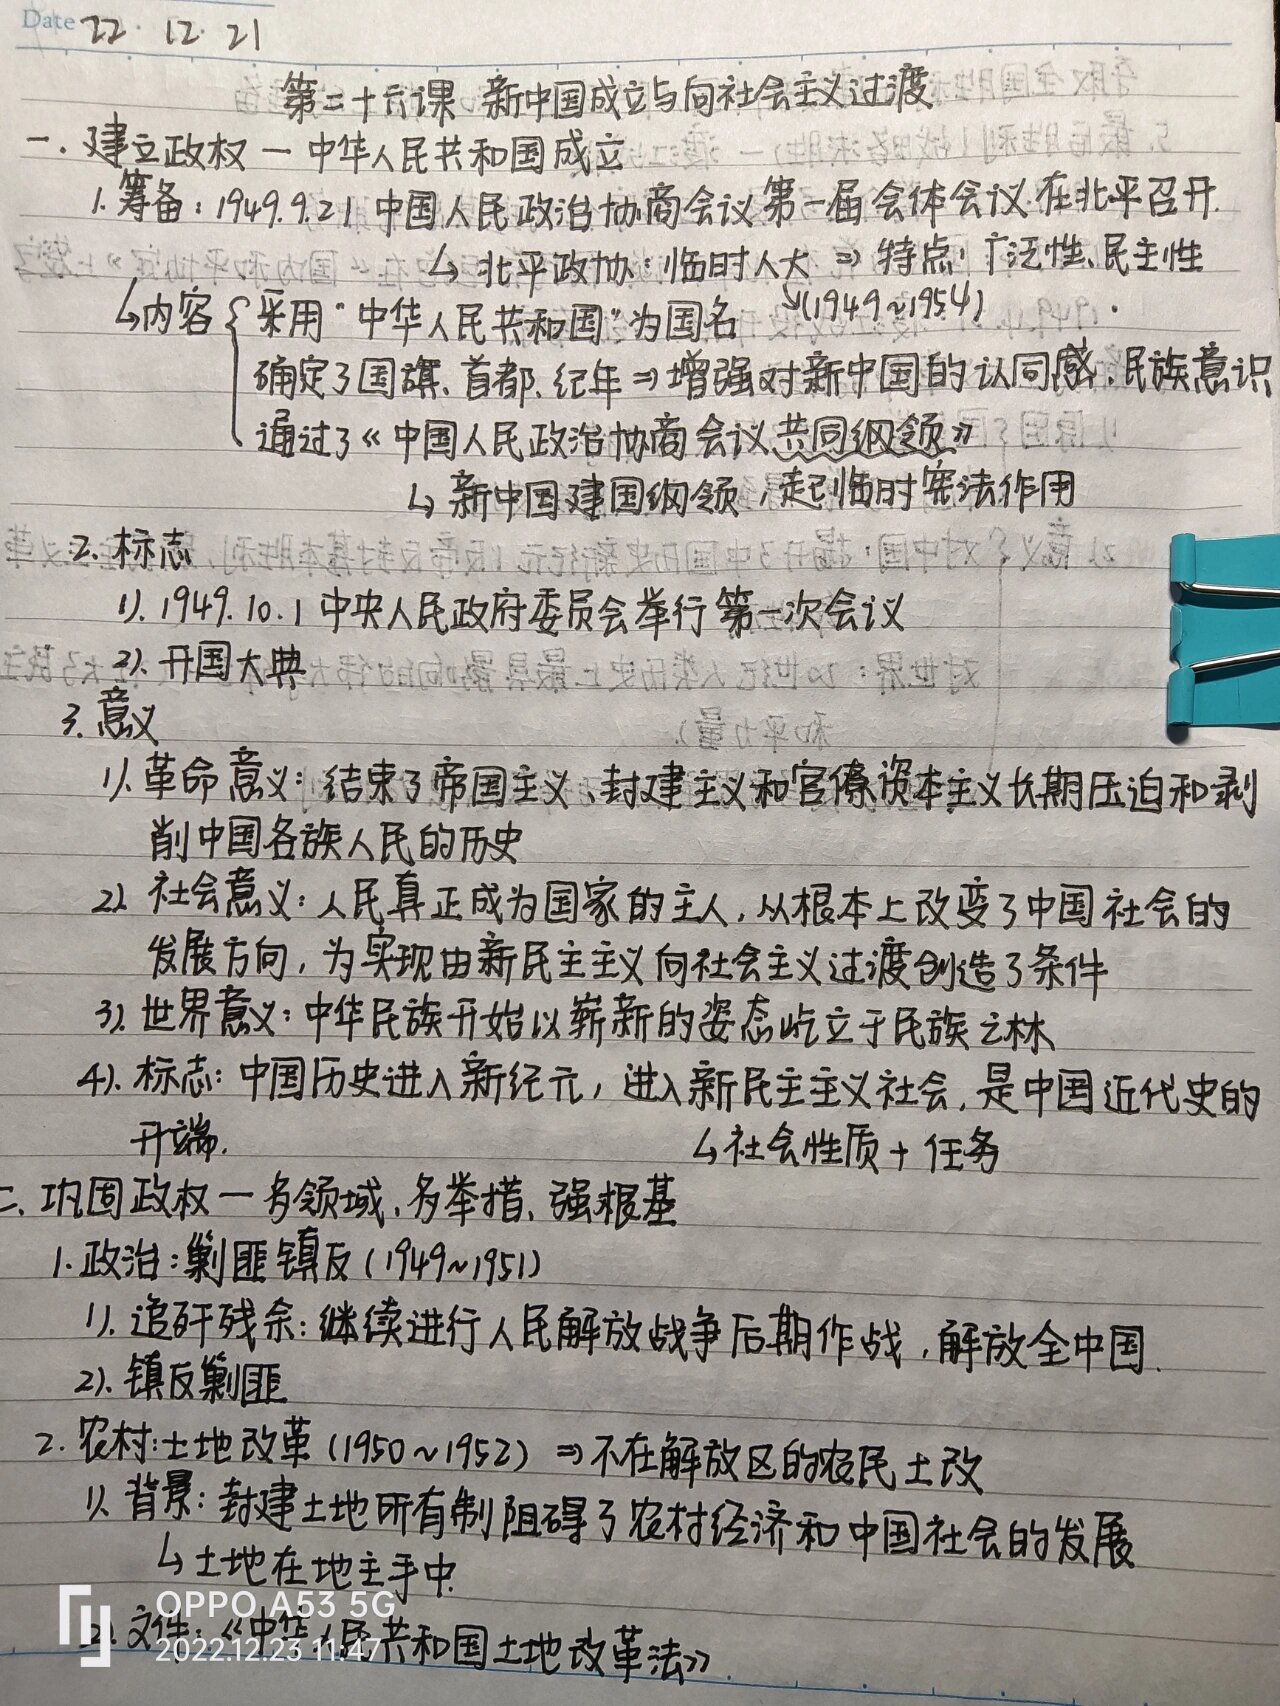 Date 22. 12. 21
第二十六课 新中国成立与向社会主义过渡
一. 建立政权 — 中华人民共和国成立
1. 筹备: 1949.9.21 中国人民政治协商会议第一届会体会议在北平召开.
↳ 北平政协: 临时人大 ⇒ 特点: 广泛性、民主性
↘(1949~1954)
↳内容 { 采用“中华人民共和国”为国名
确定了国旗、首都、纪年 ⇒ 增强对新中国的认同感、民族意识
通过了《中国人民政治协商会议共同纲领》
↳ 新中国建国纲领, 起临时宪法作用
2. 标志
1). 1949.10.1 中央人民政府委员会举行第一次会议
2). 开国大典
3. 意义
1). 革命意义: 结束了帝国主义、封建主义和官僚资本主义长期压迫和剥
削中国各族人民的历史
2). 社会意义: 人民真正成为国家的主人, 从根本上改变了中国社会的
发展方向, 为实现由新民主主义向社会主义过渡创造了条件
3). 世界意义: 中华民族开始以崭新的姿态屹立于民族之林
4). 标志: 中国历史进入新纪元, 进入新民主主义社会, 是中国近代史的
开端.
↳ 社会性质 + 任务
二. 巩固政权 — 多领域、多举措、强根基
1. 政治: 剿匪镇反 (1949~1951)
1). 追歼残余: 继续进行人民解放战争后期作战, 解放全中国.
2). 镇反剿匪
2. 农村: 土地改革 (1950~1952) ⇒ 不在解放区的农民土改
1). 背景: 封建土地所有制阻碍了农村经济和中国社会的发展
↳ 土地在地主手中.
2). 文件: 《中华人民共和国土地改革法》.
OPPO A53 5G
2022.12.23 11:47